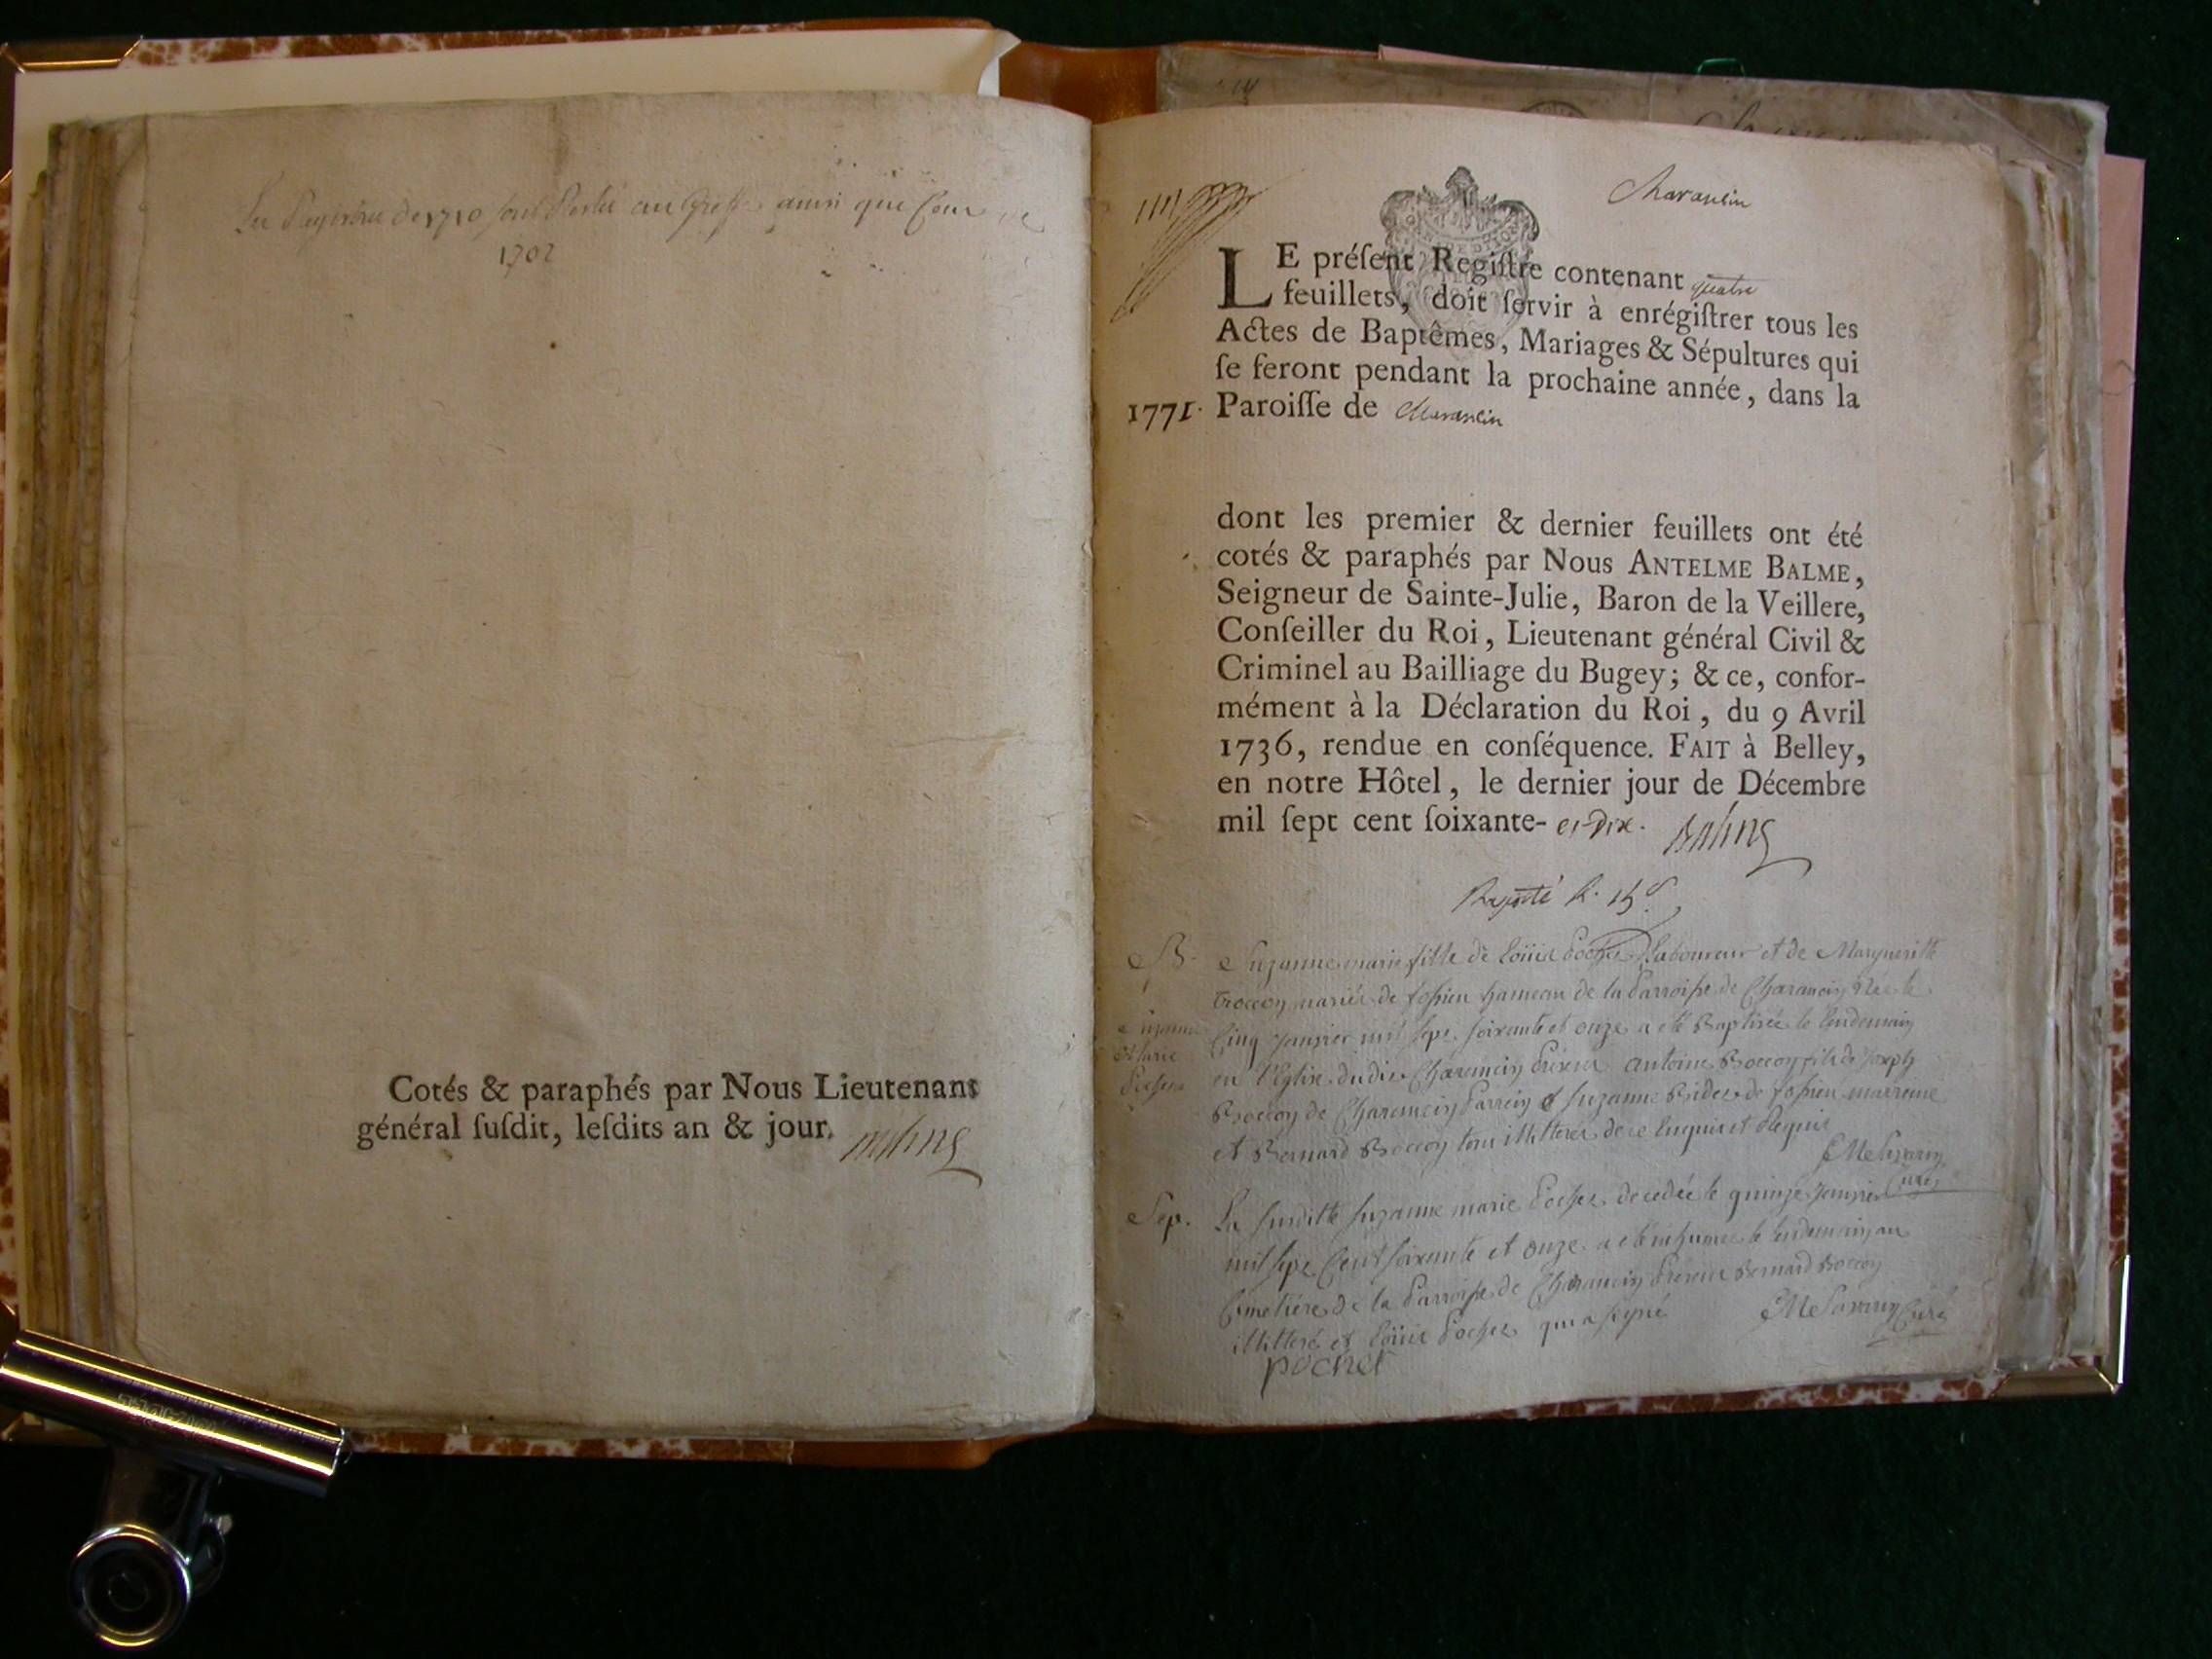 Les Registres de 1710 sont Restés au Greffe ainsi que Ceux de
1702
Cotés & paraphés par Nous Lieutenant
général ſuſdit, leſdits an & jour. Balme
Charancin
LE préſent Regiſtre contenant quatre
feuillets, doit ſervir à enrégiſtrer tous les
Actes de Baptêmes, Mariages & Sépultures qui
ſe feront pendant la prochaine année, dans la
1771. Paroiſſe de Charancin
dont les premier & dernier feuillets ont été
cotés & paraphés par Nous ANTELME BALME,
Seigneur de Sainte-Julie, Baron de la Veillere,
Conſeiller du Roi, Lieutenant général Civil &
Criminel au Bailliage du Bugey; & ce, confor-
mément à la Déclaration du Roi, du 9 Avril
1736, rendue en conſéquence. FAIT à Belley,
en notre Hôtel, le dernier jour de Décembre
mil ſept cent ſoixante- et Dix. Balme
B. Suzanne marie fille de Loüis Pochet Laboureur et de Margueritte
mariés de fossieu hameau de la Parroisse de Charancin Née le
Suzanne Cinq Janvier mil sept soixante et onze a eté Baptisée le lendemain
Marie en l'Eglise dudit Charancin Présens Antoine Boccon fils de Joseph
Pochet Boccon de Charancin Parrein et Suzanne de fossieu marreine
et Bernard Boccon tous illitterés de ce Enquis et Requis
CMeSavarin
Curé
Sep. La susditte Suzanne marie Pochet decedée le quinze Janvier
mil sept Cent soixante et onze a eté inhumée le lendemain au
Cimetiére de la Parroisse de Charancin Présens Bernard Boccon
illitteré et Loüis Pochet qui a signé CMeSavarin Curé
pochet